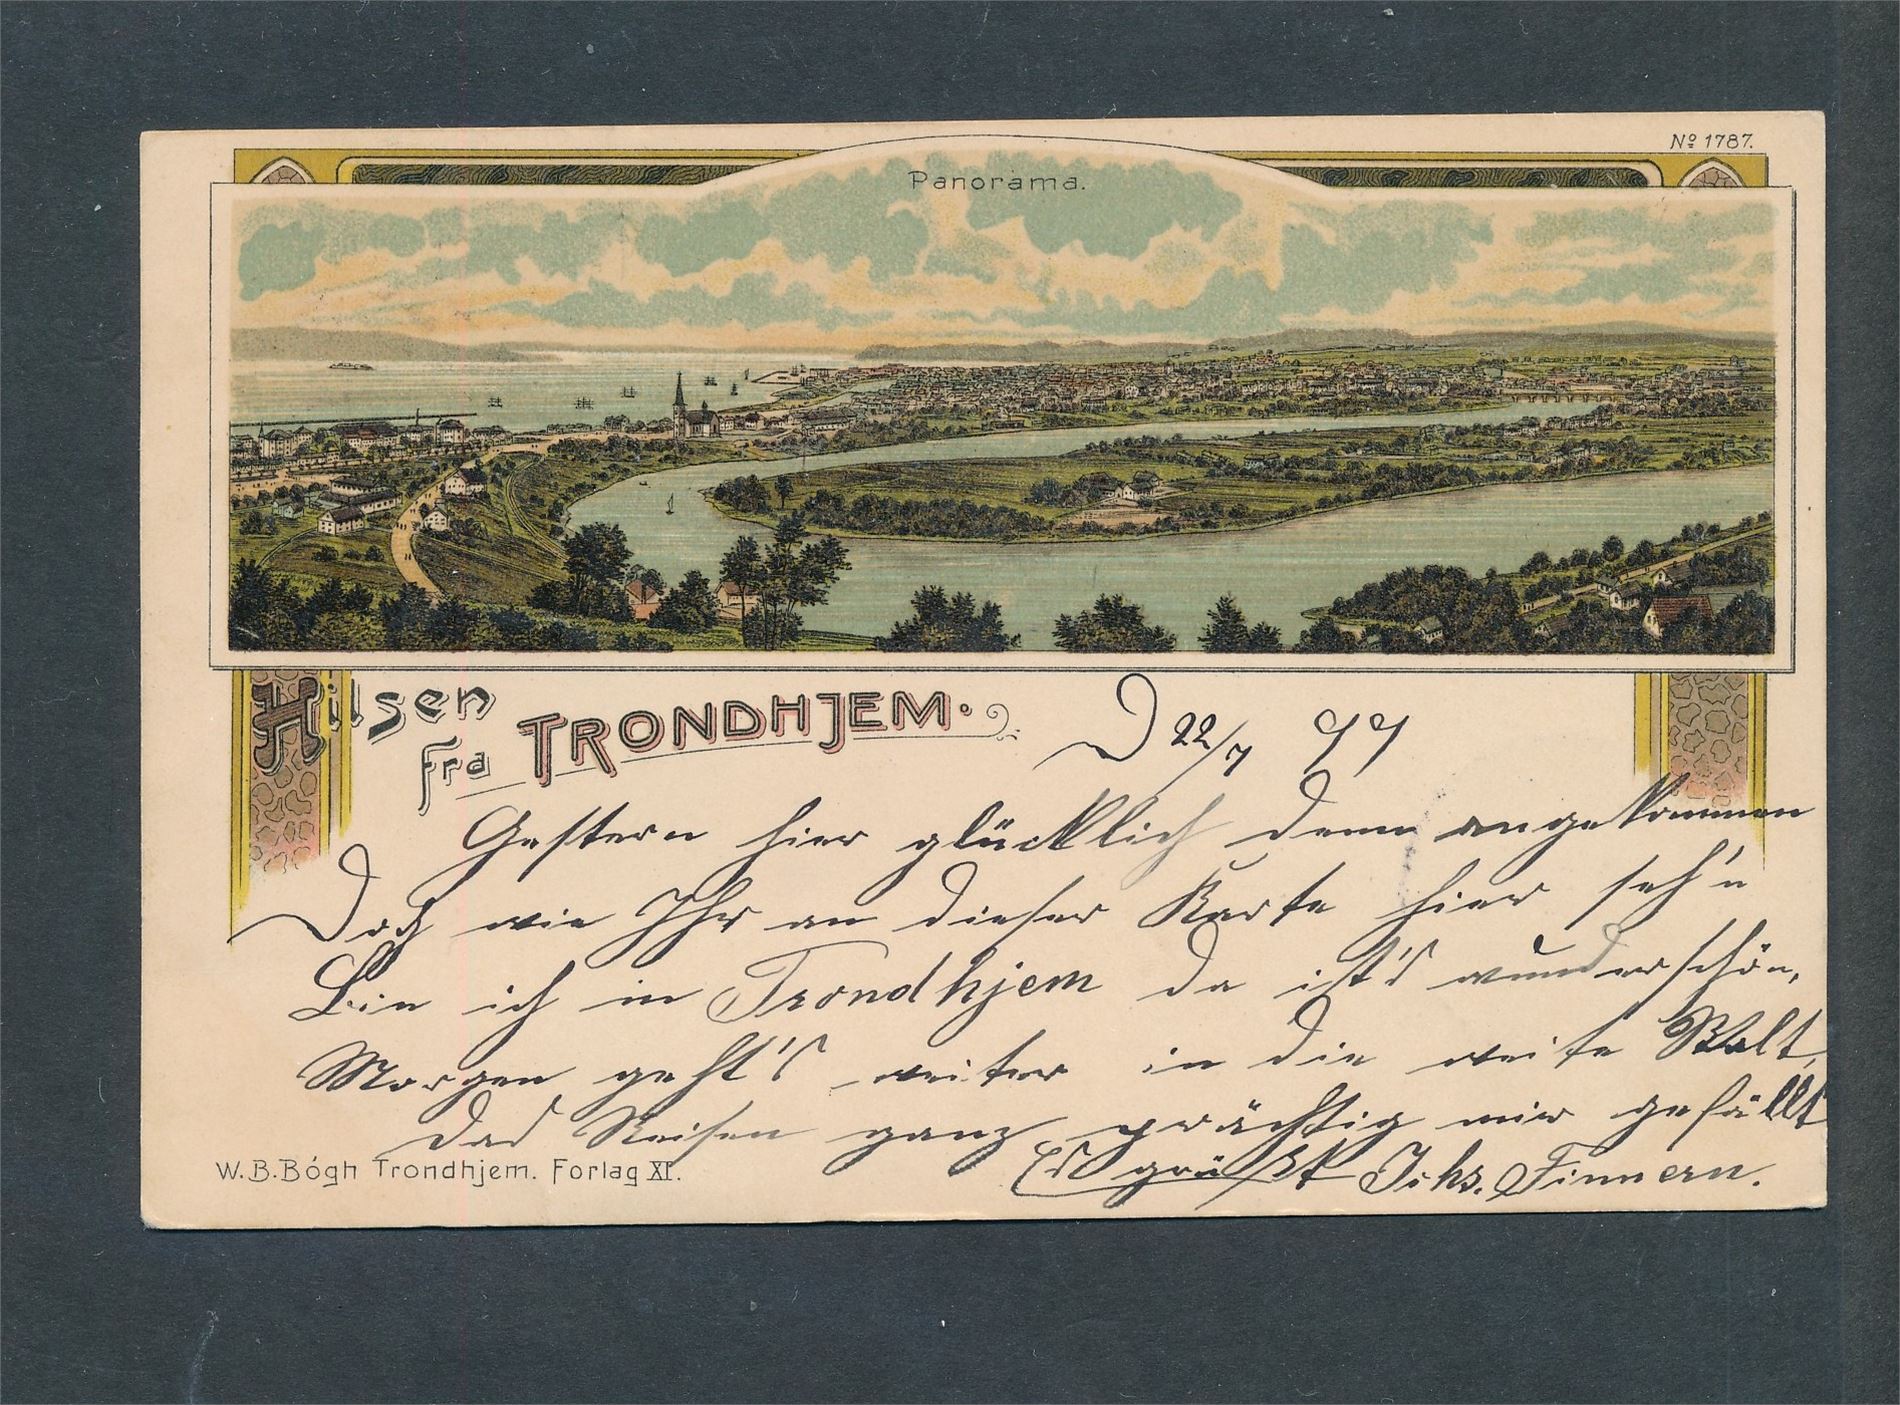 Nº 1787.
Panorama.
Hilsen
fra TRONDHJEM.
D 22/7 99
Gestern hier glücklich denn angekommen
Doch wie Ihr an dieser Karte hier seh'n
Bin ich in Trondhjem da ist's wunderschön,
Morgen geht's weiter in die weite Welt,
Das Reisen ganz prächtig mir gefällt
Es grüßt Johs. Finnern.
W. B. Bógh Trondhjem. Forlag XI.